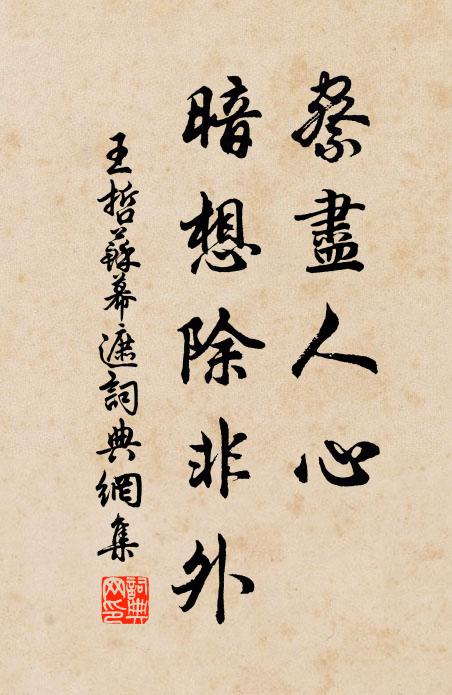 察盡人心
暗想除非外
王哲蘇幕遮詞典網集
詞典
网印